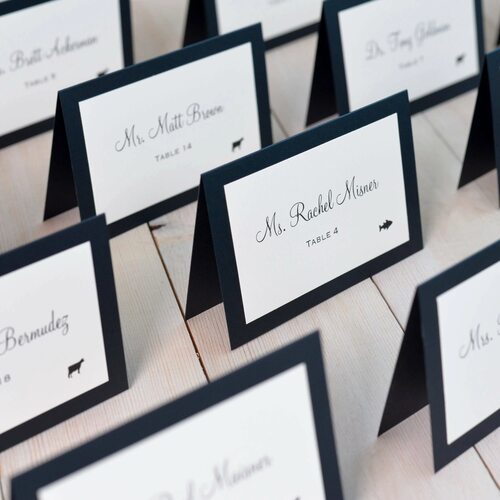 Brett Ackerman
TABLE 5
Dr. Tony Goldman
TABLE 7
Mr. Matt Brown
TABLE 14
Ms. Rachel Misner
TABLE 4
Bermudez
Mrs.